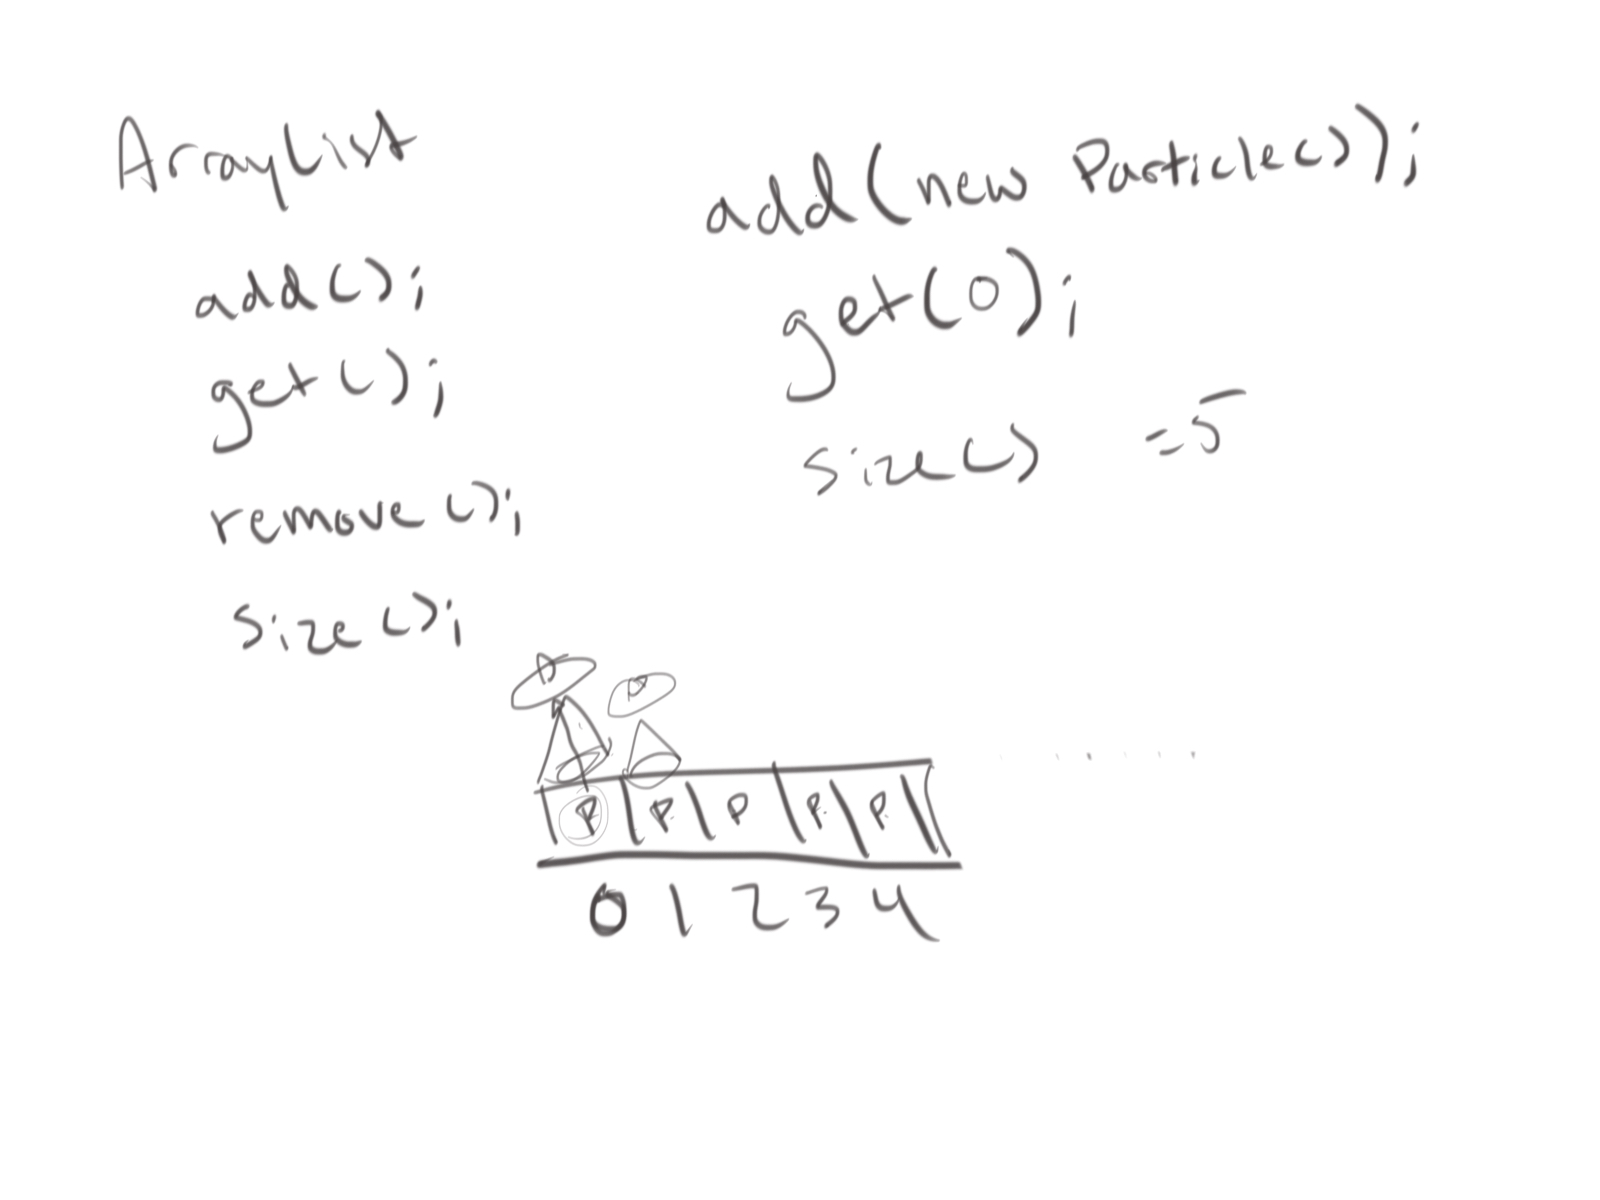 ArrayList
add();
get();
remove();
size();
add(new Particle());
get(0);
size() =5
P P
P P P P P
0 1 2 3 4